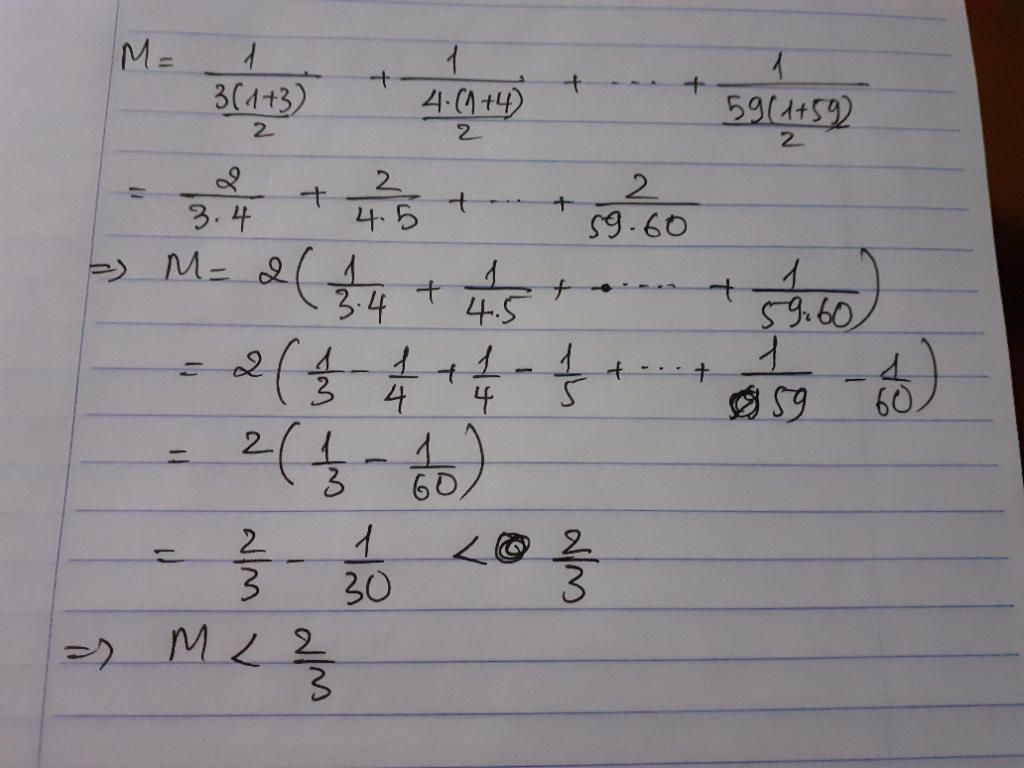 M = 1/(3(1+3)/2) + 1/(4.(1+4)/2) + .... + 1/(59(1+59)/2)
= 2/(3.4) + 2/(4.5) + ... + 2/(59.60)
=> M = 2(1/(3.4) + 1/(4.5) + ..... + 1/(59.60))
= 2(1/3 - 1/4 + 1/4 - 1/5 + ... + 1/59 - 1/60)
= 2(1/3 - 1/60)
= 2/3 - 1/30 < 2/3
=> M < 2/3